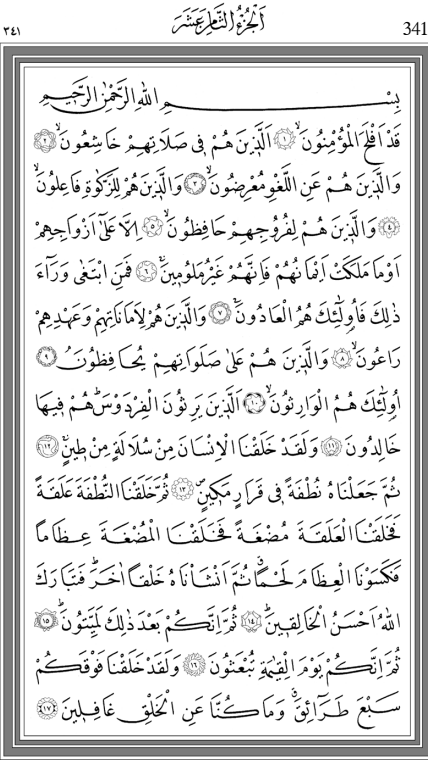 ٣٤١ اَلْجُزْءُ الثَّامِنَ عَشَرَ 341
بِسْمِ اللّٰهِ الرَّحْمٰنِ الرَّحٖيمِ
قَدْ اَفْلَحَ الْمُؤْمِنُونَۙ ﴿١﴾ اَلَّذٖينَ هُمْ فٖى صَلَاتِهِمْ خَاشِعُونَۙ ﴿٢﴾
وَالَّذٖينَ هُمْ عَنِ اللَّغْوِ مُعْرِضُونَۙ ﴿٣﴾ وَالَّذٖينَ هُمْ لِلزَّكٰوةِ فَاعِلُونَۙ
﴿٤﴾ وَالَّذٖينَ هُمْ لِفُرُوجِهِمْ حَافِظُونَۙ ﴿٥﴾ اِلَّا عَلٰٓى اَزْوَاجِهِمْ
اَوْ مَا مَلَكَتْ اَيْمَانُهُمْ فَاِنَّهُمْ غَيْرُ مَلُومٖينَۚ ﴿٦﴾ فَمَنِ ابْتَغٰى وَرَٓاءَ
ذٰلِكَ فَاُولٰٓئِكَ هُمُ الْعَادُونَۚ ﴿٧﴾ وَالَّذٖينَ هُمْ لِاَمَانَاتِهِمْ وَعَهْدِهِمْ
رَاعُونَۙ ﴿٨﴾ وَالَّذٖينَ هُمْ عَلٰى صَلَوَاتِهِمْ يُحَافِظُونَۢ ﴿٩﴾
اُولٰٓئِكَ هُمُ الْوَارِثُونَۙ ﴿١٠﴾ اَلَّذٖينَ يَرِثُونَ الْفِرْدَوْسَۜ هُمْ فٖيهَا
خَالِدُونَ ﴿١١﴾ وَلَقَدْ خَلَقْنَا الْاِنْسَانَ مِنْ سُلَالَةٍ مِنْ طٖينٍۚ ﴿١٢﴾
ثُمَّ جَعَلْنَاهُ نُطْفَةً فٖى قَرَارٍ مَكٖينٍۖ ﴿١٣﴾ ثُمَّ خَلَقْنَا النُّطْفَةَ عَلَقَةً
فَخَلَقْنَا الْعَلَقَةَ مُضْغَةً فَخَلَقْنَا الْمُضْغَةَ عِظَامًا
فَكَسَوْنَا الْعِظَامَ لَحْمًاۗ ثُمَّ اَنْشَاْنَاهُ خَلْقًا اٰخَرَۜ فَتَبَارَكَ
اللّٰهُ اَحْسَنُ الْخَالِقٖينَۜ ﴿١٤﴾ ثُمَّ اِنَّكُمْ بَعْدَ ذٰلِكَ لَمَيِّتُونَۜ ﴿١٥﴾
ثُمَّ اِنَّكُمْ يَوْمَ الْقِيٰمَةِ تُبْعَثُونَ ﴿١٦﴾ وَلَقَدْ خَلَقْنَا فَوْقَكُمْ
سَبْعَ طَرَٓائِقَۗ وَمَا كُنَّا عَنِ الْخَلْقِ غَافِلٖينَ ﴿١٧﴾